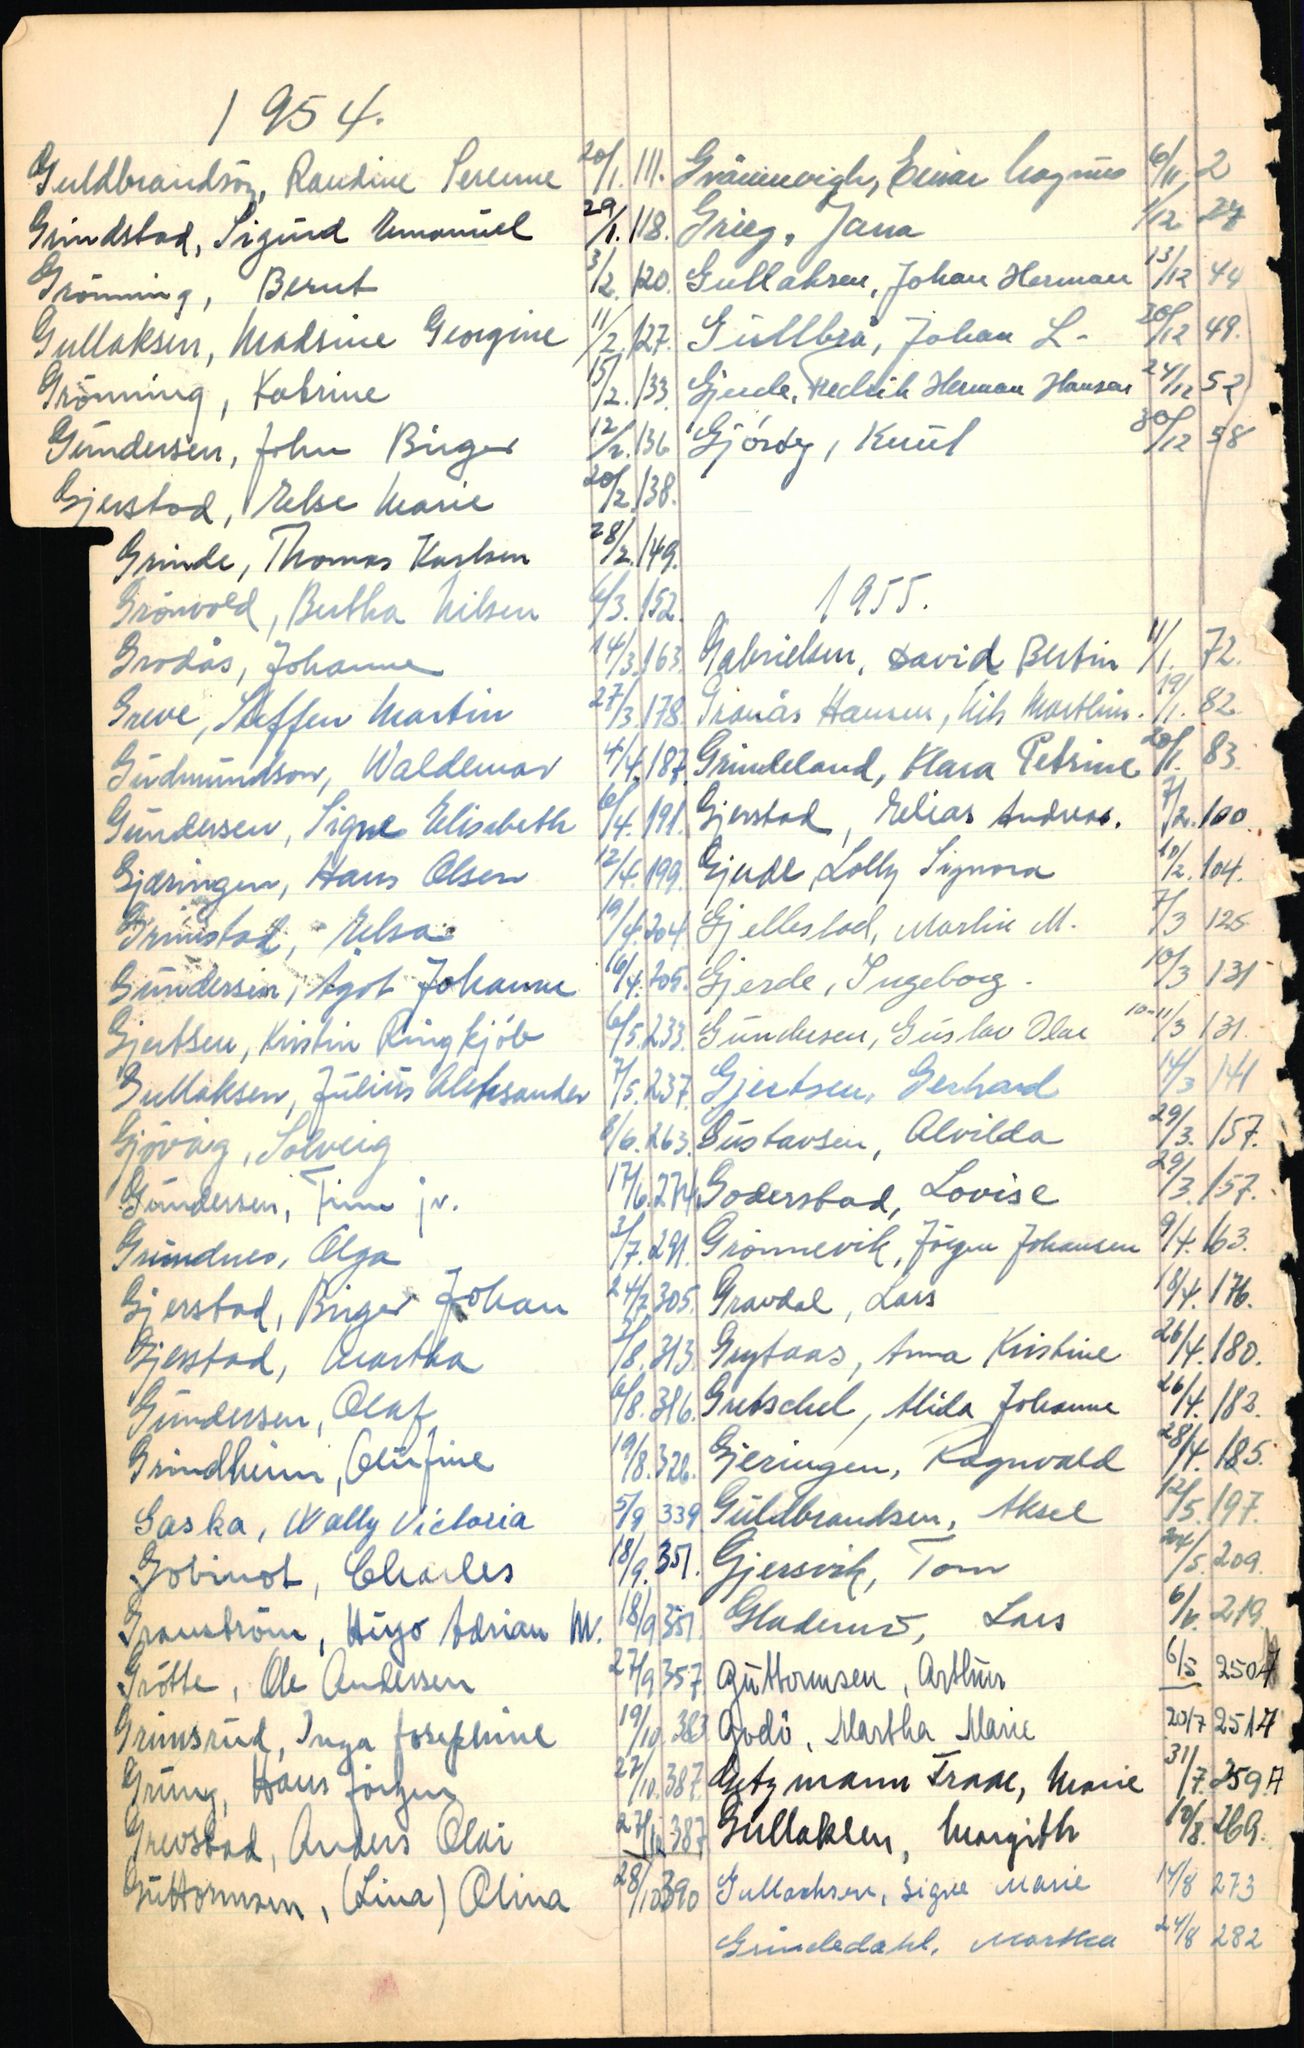 1954.
Guldbrandsöy, Randine Serenne 20/1. 111.
Grindstad, Sigurd Emanuel 29/1. 118.
Grönning, Bernt 3/2. 120.
Gullaksen, Madsine Georgine 11/2. 127.
Grönning, Katrine 15/2. 133.
Gundersen, John Birger 12/2. 136
Gjerstad, Else Marie 20/2. 138.
Grinde, Thomas Karlsen 28/2. 149.
Grönvold, Bertha Nilsen 6/3. 152.
Grodås, Johanne 14/3. 163.
Greve, Steffen Martin 27/3 178.
Gudmundson, Waldemar 4/4. 187.
Gundersen, Signe Elisabeth 6/4. 191.
Gjæringen, Hans Olsen 12/4. 199.
Grimstad, Elsa 19/4. 204
Gundersen, Ågot Johanne 16/4. 205.
Gjertsen, Kristin Ringkjöb 6/5. 233.
Gullaksen, Julius Aleksander 7/5. 237.
Gjövåg, Solveig 8/6. 263.
Gundersen, Finn jr. 17/6. 274.
Grundnes, Olga 3/7. 291.
Gjerstad, Birger Johan 24/7 305.
Gjerstad, Martha 2/8. 313.
Gundersen, Olaf 6/8. 316.
Grindheim, Olufine 19/8. 326.
Gaska, Wally Victoria 5/9 339
Gobinot, Charles 18/9. 351.
Granström, Hugo Adrian M. 18/9 351.
Grötte, Ole Andersen 27/9 357
Grimsrud, Inga Josephine 19/10. 383
Grung, Hans Jörgen 27/10. 387.
Grevstad, Anders Olai 27/10 387
Guttormsen, (Lina) Olina 28/10 390
Grännevigh, Einar Magnus 6/11, 2
Grieg, Jana 1/12 27
Gullaksen, Johan Herman 13/12 44
Gullbrå, Johan L. 20/12 49.
Gjerde, Fredrik Herman Hansen 24/12 52
Gjöröy, Knut 30/12 58
1955.
Gabrielsen, David Bertin 11/1. 72.
Granås Hansen, Nils Marthin. 19/1. 82.
Grindeland, Klara Petrine 20/1. 83.
Gjerstad, Elias Andreas. 7/2. 100.
Gjerde, Lolly Signora 10/2. 104.
Gjellestad, Martin M. 7/3 125
Gjerde, Ingeborg. 10/3 131
Gundersen, Gustav Olai 10-11/3 131.
Gjertsen, Gerhard 14/3 141
Gustavsen, Alvilda 29/3. 157.
Goderstad, Lovise 29/3. 157.
Grönnevik, Jörgen Johansen 9/4. 163.
Gravdal, Lars 18/4. 176.
Grytaas, Anna Kristine 26/4. 180.
Gretschel, Alida Johanne 26/4. 182.
Gjeringen, Ragnvald 28/4. 185.
Guldbrandsen, Aksel 12/5. 197.
Gjersvik, Tom 24/5. 209.
Lars 6/6. 219.
Guttormsen, Arthur 6/5 250A
Godö, Martha Marie 20/7 251A
Getzmann Traae, Marie 31/7. 259A
Gullaksen, Margith 10/8. 269.
Gullachsen, Signe Marie 14/8 273
Grindedahl, Martha 24/8 282